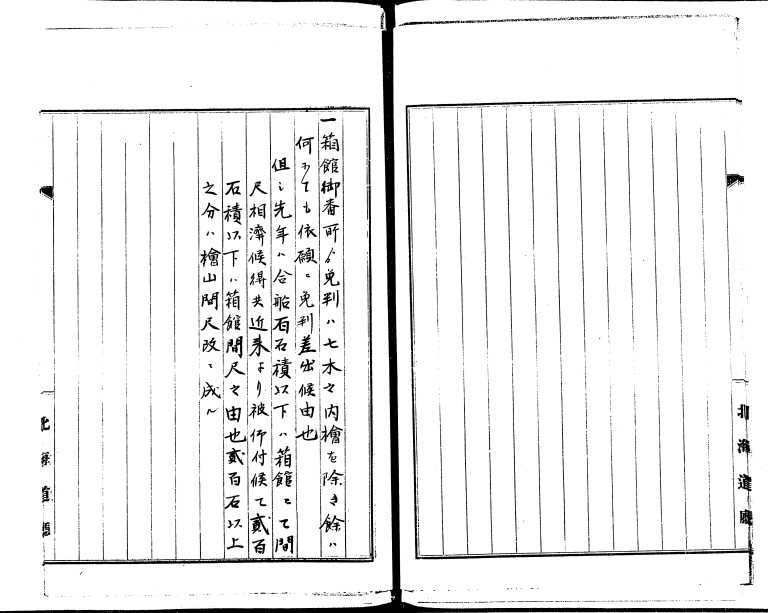 北海道廳
一箱館御番所ゟ免判ハ七木之内檜を除き餘ハ
何ニても依願ニ免判差出候由也
但シ先年ハ合船百石積以下ハ箱館ニて間
尺相濟候得共近來より被仰付候て貳百
石積以下ハ箱館間尺之由也貳百石以上
之分ハ檜山間尺改ニ成ル
北海道廳